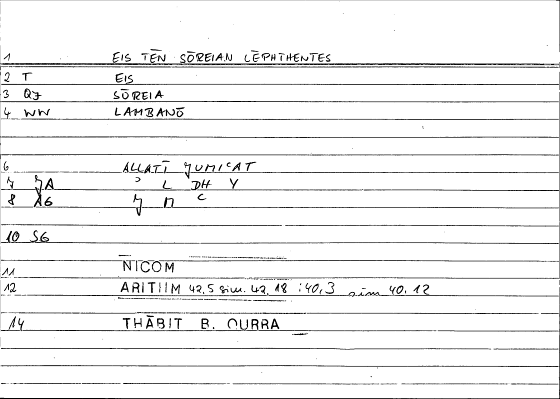 1 EIS TĒN SŌREIAN LĒPHTHENTES
2 T EIS
3 QJ SŌREIA
4 WW LAMBANŌ
6 ALLATĪ JUMIʿAT
7 JA ʾ L DH Y
8 AG J M ʿ
10 SG
11 NICOM
12 ARITHM 42,5 sim. 42, 18 : 40,3 sim 40, 12
14 THĀBIT B. QURRA